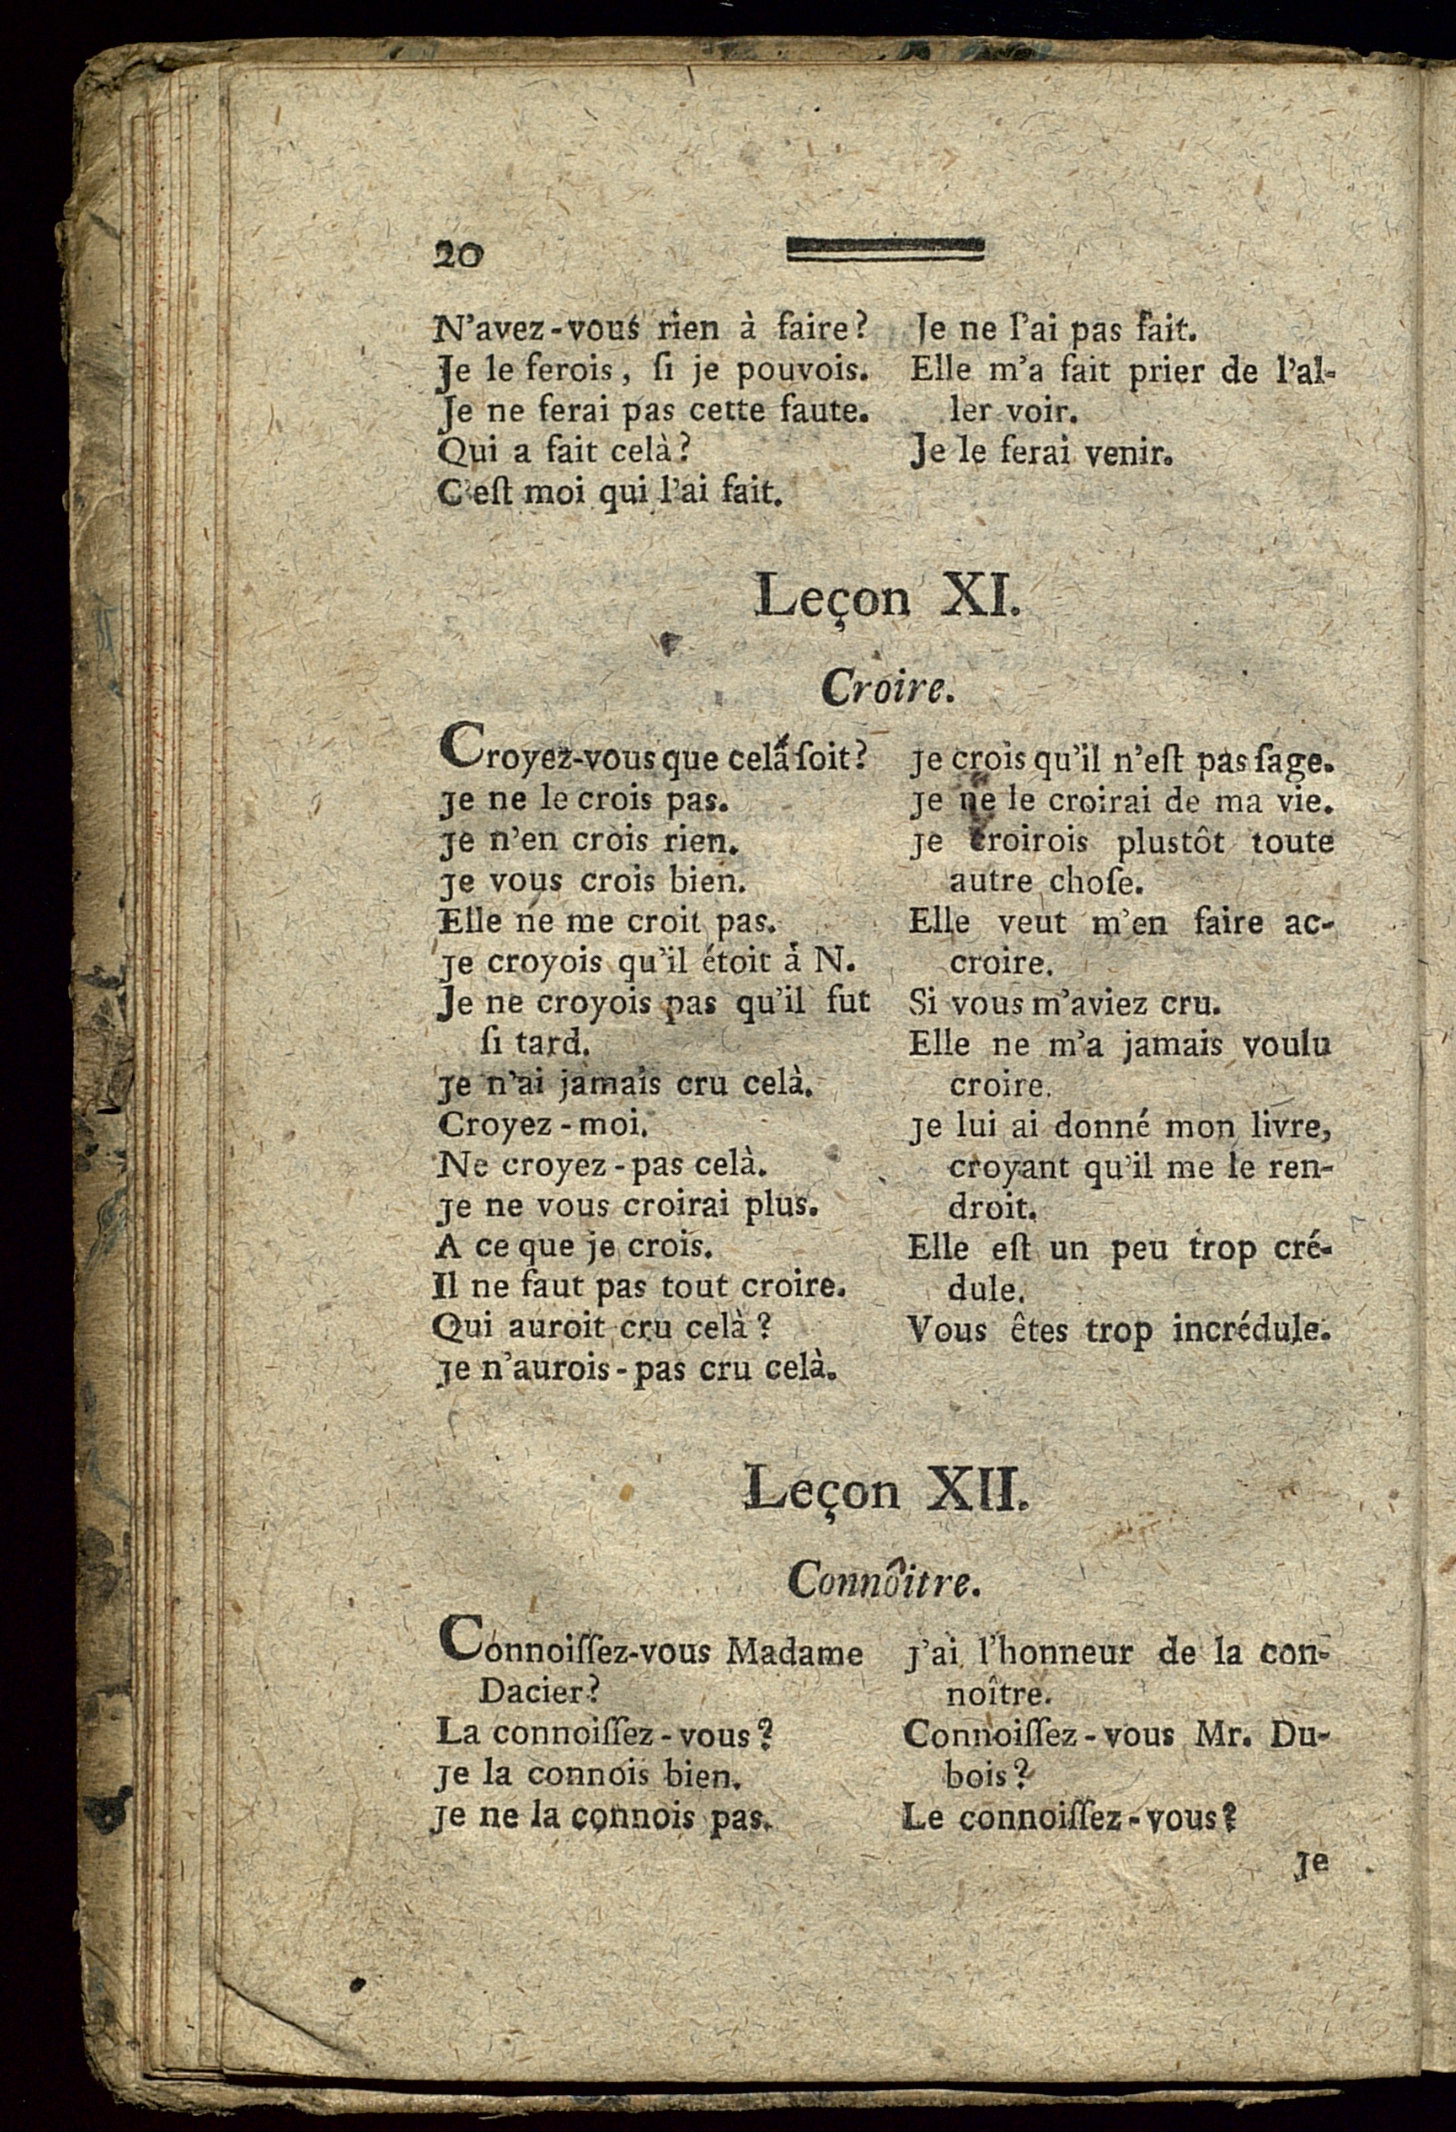 20
N'avez-vous rien à faire?
Je le ferois, ſi je pouvois.
Je ne ferai pas cette faute.
Qui a fait celà?
C'eſt moi qui l'ai fait.
Je ne l'ai pas fait.
Elle m'a fait prier de l'al-
ler voir.
Je le ferai venir.
Leçon XI.
Croire.
Croyez-vous que celà ſoit?
Je ne le crois pas.
Je n'en crois rien.
Je vous crois bien.
Elle ne me croit pas.
Je croyois qu'il étoit à N.
Je ne croyois pas qu'il fut
ſi tard.
Je n'ai jamais cru celà.
Croyez-moi.
Ne croyez-pas celà.
Je ne vous croirai plus.
A ce que je crois.
Il ne faut pas tout croire.
Qui auroit cru celà?
Je n'aurois-pas cru celà.
Je crois qu'il n'eſt pas ſage.
Je ne le croirai de ma vie.
Je croirois plustôt toute
autre choſe.
Elle veut m'en faire ac-
croire.
Si vous m'aviez cru.
Elle ne m'a jamais voulu
croire.
Je lui ai donné mon livre,
croyant qu'il me le ren-
droit.
Elle eſt un peu trop cré-
dule.
Vous êtes trop incrédule.
Leçon XII.
Connôitre.
Connoiſſez-vous Madame
Dacier?
La connoiſſez-vous?
Je la connois bien.
Je ne la connois pas.
J'ai l'honneur de la con-
noître.
Connoiſſez-vous Mr. Du-
bois?
Le connoiſſez-vous?
Je